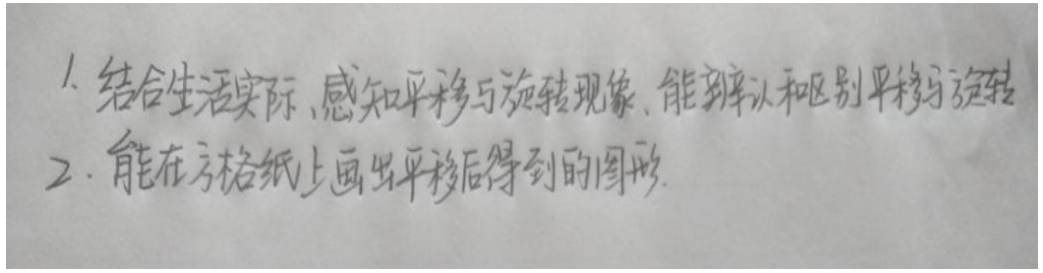 1. 结合生活实际、感知平移与旋转现象、能辨认和区别平移与旋转
2. 能在方格纸上画出平移后得到的图形.